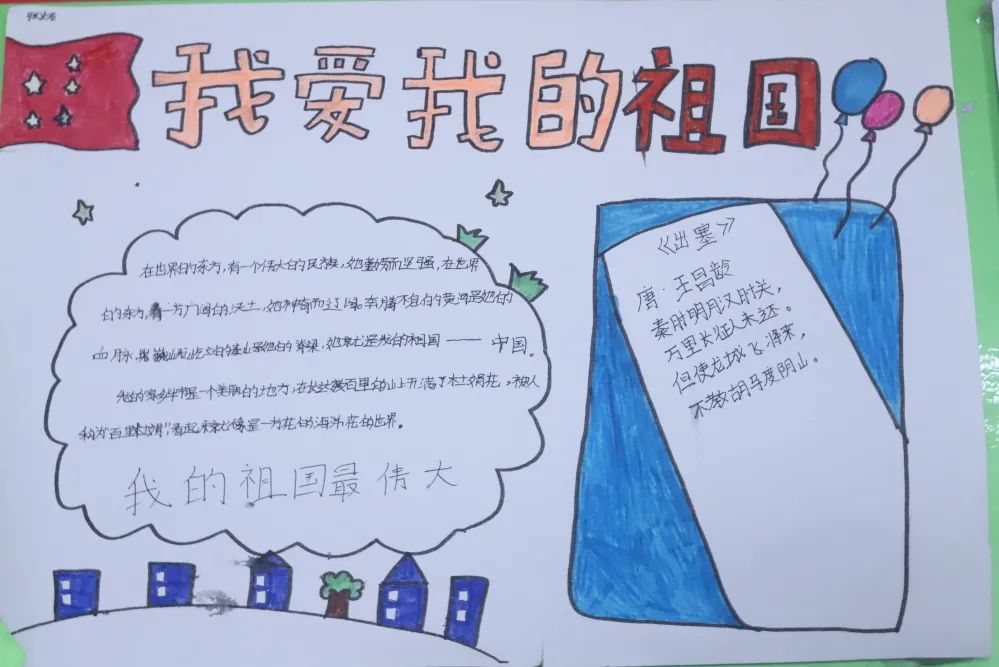 我爱我的祖国
在世界的东方,有一个伟大的民族,她勤劳而坚强,在世界
的东方,有一方广阔的沃土,她神奇而辽阔奔腾不息的黄河是她的
血脉,巍巍屹立的泰山是她的脊梁,她就是我的祖国——中国。
我的家乡毕节是一个美丽的地方,在长达百里的山上开满了杜鹃花,被人
称为“百里杜鹃”看起来就像是一方花的海洋花的世界。
我的祖国最伟大
《出塞》
唐·王昌龄
秦时明月汉时关,
万里长征人未还。
但使龙城飞将来,
不教胡马度阴山。